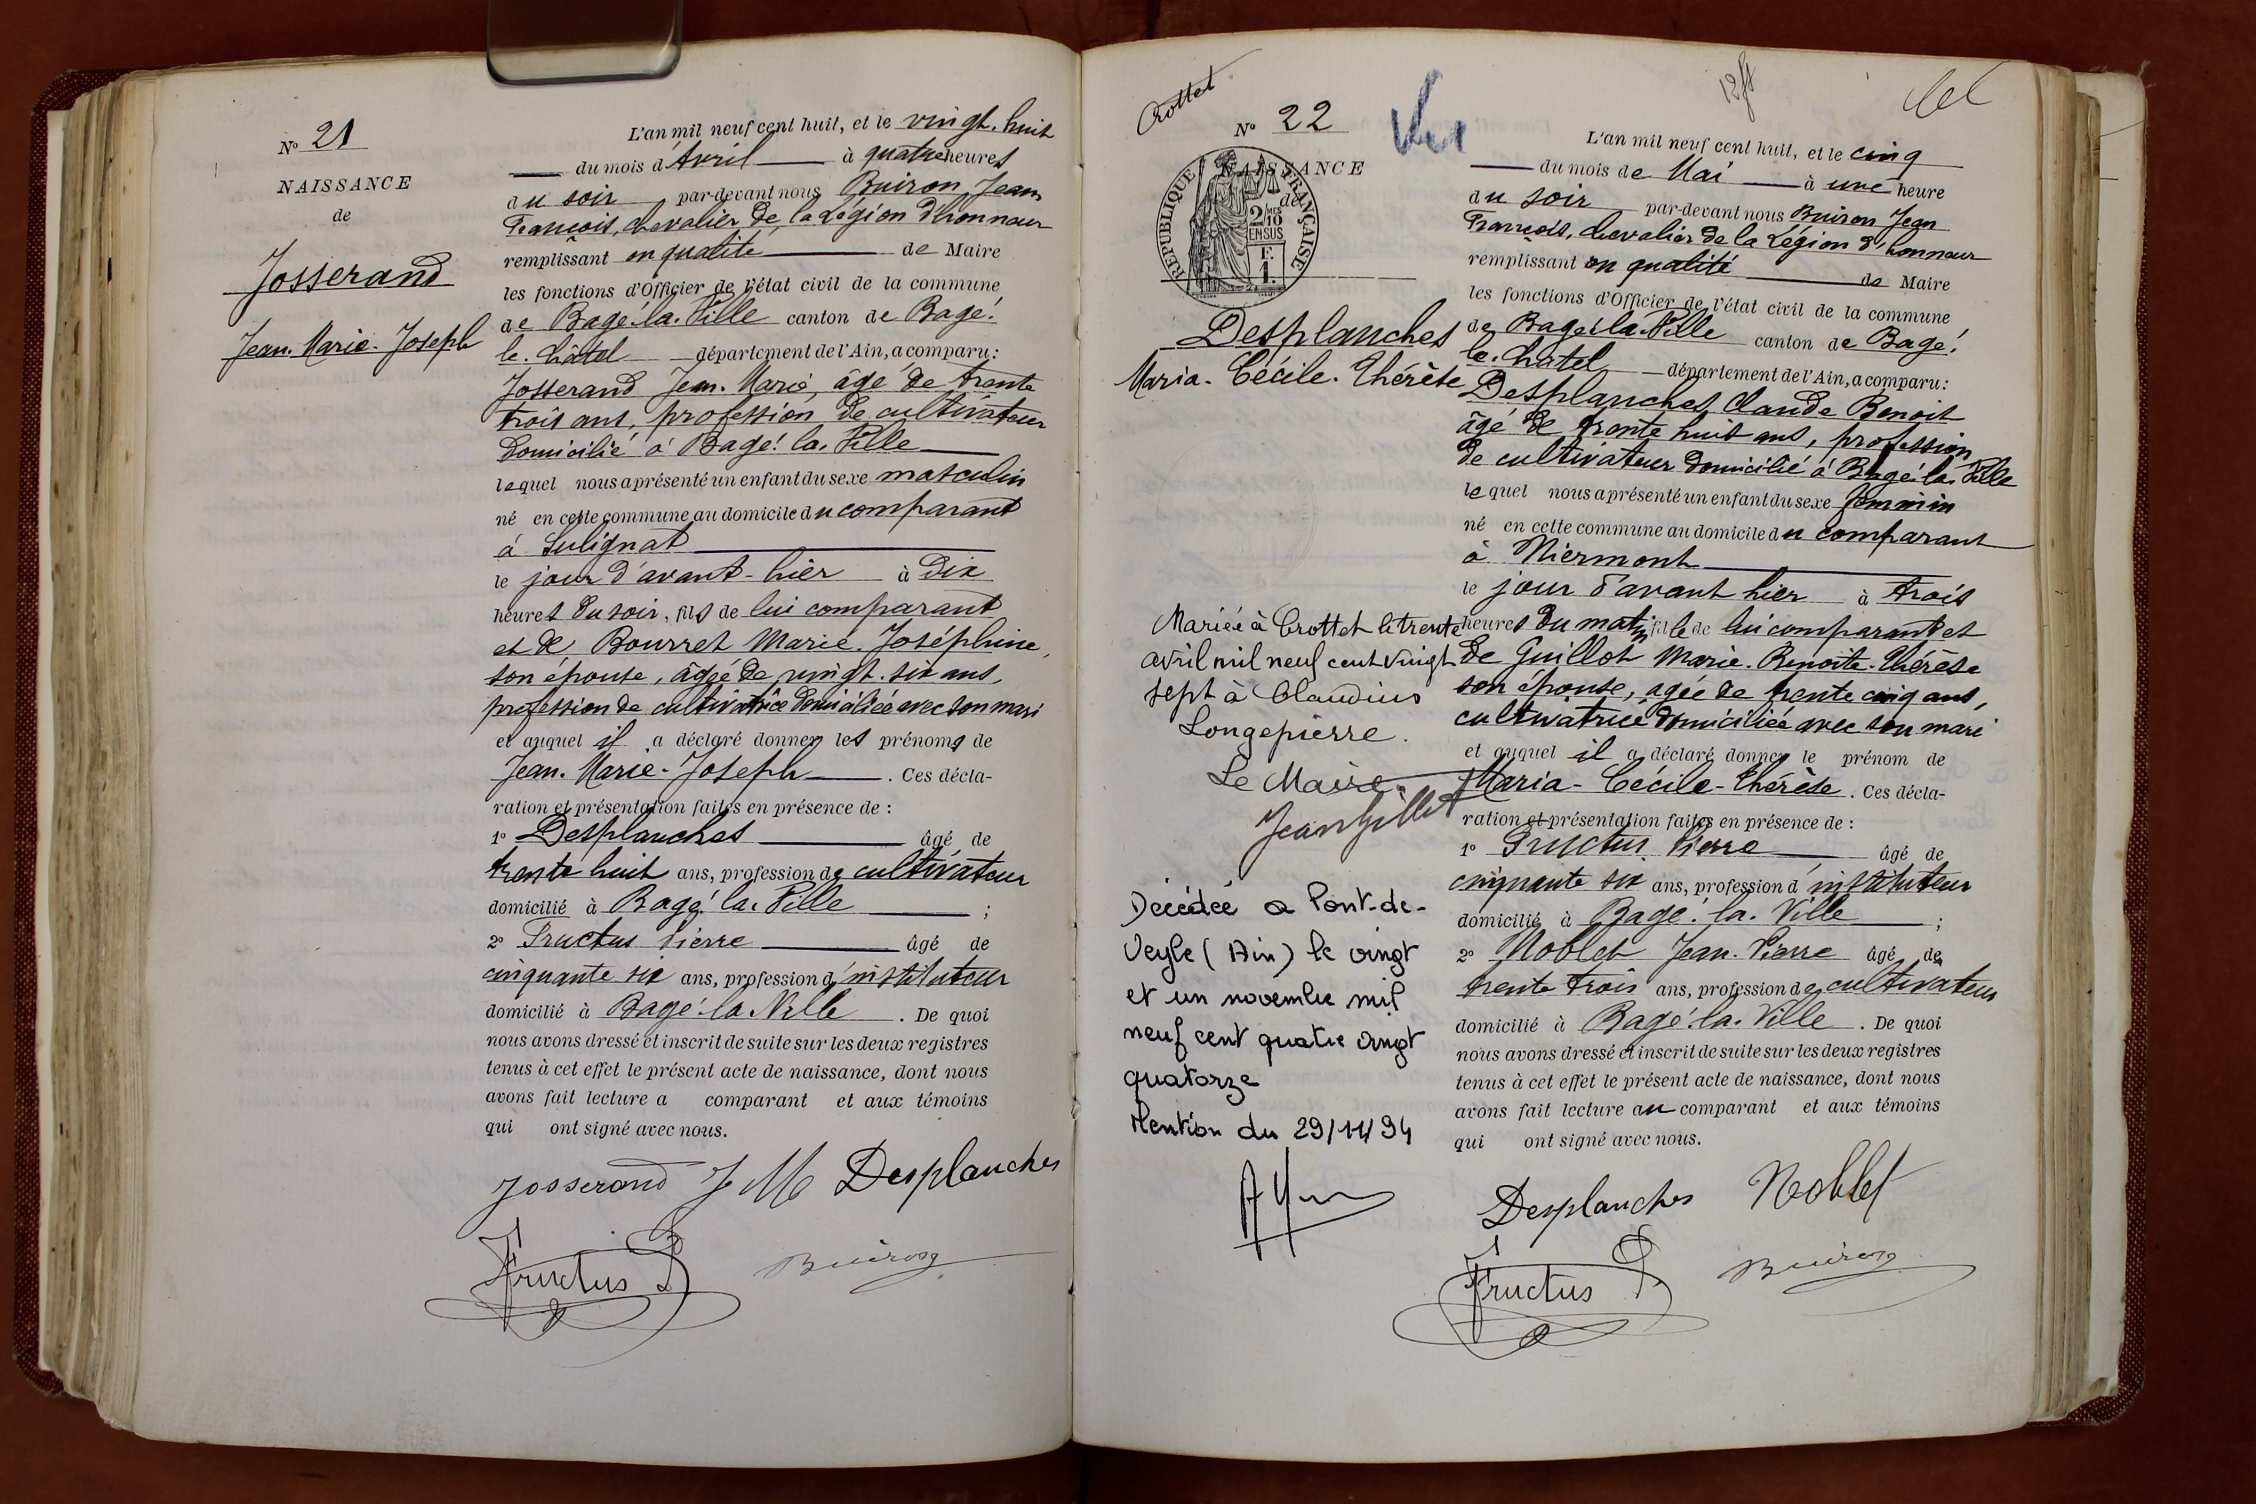 N° 21
NAISSANCE
de
Josserand
Jean-Marie-Joseph
L'an mil neuf cent huit, et le vingt-huit
du mois d'Avril à quatre heures
du soir par-devant nous Buiron Jean
François, chevalier de la Légion d'honneur
remplissant en qualité de Maire
les fonctions d'Officier de l'état civil de la commune
de Bagé-la-Ville canton de Bagé-
le-Châtel département de l'Ain, a comparu:
Josserand Jean-Marie, âgé de trente
trois ans, profession de cultivateur
domicilié à Bagé-la-Ville
lequel nous a présenté un enfant du sexe masculin
né en cette commune au domicile du comparant
à Sulignat
le jour d'avant-hier à dix
heures du soir, fils de lui comparant
et de Bourret Marie-Joséphine,
son épouse, âgée de vingt-six ans,
profession de cultivatrice domiciliée avec son mari
et auquel il a déclaré donner les prénoms de
Jean-Marie-Joseph. Ces décla-
ration et présentation faites en présence de :
1° Desplanches âgé de
trente huit ans, profession de cultivateur
domicilié à Bagé-la-Ville ;
2° Fructus Pierre âgé de
cinquante six ans, profession d'instituteur
domicilié à Bagé-la-Ville. De quoi
nous avons dressé et inscrit de suite sur les deux registres
tenus à cet effet le présent acte de naissance, dont nous
avons fait lecture a comparant et aux témoins
qui ont signé avec nous.
Josserand J M Desplanches
Fructus P Buiron
Crottet
N° 22
Vu
NAISSANCE
de
REPUBLIQUE FRANÇAISE
2/10 MES
EN SUS
F.
1.
Desplanches
Maria-Cécile-Thérèse
L'an mil neuf cent huit, et le cinq
du mois de Mai à une heure
du soir par-devant nous Buiron Jean
François, chevalier de la Légion d'honneur
remplissant en qualité de Maire
les fonctions d'Officier de l'état civil de la commune
de Bagé-la-Ville canton de Bagé-
le-Châtel département de l'Ain, a comparu:
Desplanches Claude Benoit
âgé de trente huit ans, profession
de cultivateur domicilié à Bagé-la-Ville
lequel nous a présenté un enfant du sexe féminin
né en cette commune au domicile du comparant
à Niermont
le jour d'avant hier à trois
heures du matin, fille de lui comparant et
de Guillot Marie-Benoite-Thérèse
son épouse, âgée de trente cinq ans,
cultivatrice domiciliée avec son mari
et auquel il a déclaré donner le prénom de
Maria-Cécile-Thérèse. Ces décla-
ration et présentation faites en présence de :
1° Fructus Pierre âgé de
cinquante six ans, profession d'instituteur
domicilié à Bagé-la-Ville ;
2° Noblet Jean-Pierre âgé de
trente trois ans, profession de cultivateur
domicilié à Bagé-la-Ville. De quoi
nous avons dressé et inscrit de suite sur les deux registres
tenus à cet effet le présent acte de naissance, dont nous
avons fait lecture au comparant et aux témoins
qui ont signé avec nous.
Desplanches Noblet
Fructus P. Buiron
Mariée à Crottet le trente
avril mil neuf cent vingt
sept à Claudius
Longepierre.
Le Maire.
Jean Gillet
Décédée a Pont-de-
Veyle (Ain) le vingt
et un novembre mil
neuf cent quatre vingt
quatorze
Mention du 29/11/94